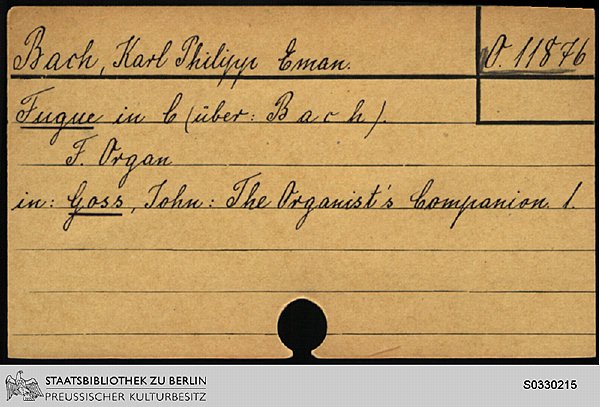 Bach, Karl Philipp Eman.
O. 11876
Fugue in C (über: Bach).
F. Organ
in: Goss, John: The Organist's Companion. 1.
STAATSBIBLIOTHEK ZU BERLIN
PREUSSISCHER KULTURBESITZ
S0330215